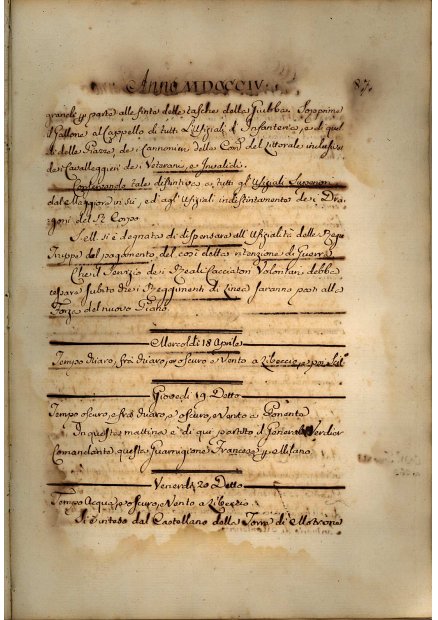 Anno MDCCCIV. 87.
grandi p parte alle finta delle tasche della Giubba. Sopprime
il Gallone al Cappello di tutti L'Ufiziali d'Infanteria, e di quel
li delle Piazze, dei Cannonieri delle Con. del Littorale inclusive
dei Cavalleggieri dei Veterani, e Invalidi.
Conservando tale distintivo a tutti gl'Ufiziali Superiori
dal Maggiore in sù, ed agl'Ufiziali indistintamente dei Dra,
goni del Corpo.
si è degnata di dispensare all'Ufizialità delle
Truppe del pagamento del così detta ritenzione di Guerra
Che il Servizio dei Reali Cacciatori Volontari debba
cessare subito che i Reggimenti di Linea saranno posti alla
Forza del nuovo Piano.
Mercoldi 18 Aprile
Tempo chiaro, frà chiaro, e oscuro e Vento a Libeccio, e poi
Giovedi 19 Detto
Tempo oscuro, e frà chiaro, e oscuro, e Vento a Ponente
In questa mattina è di qui partito il Generale Verdier
Comandante questa Guarnigione Francese p Milano
Venerdi 20 Detto
Tempo Acqua, e oscuro, e Vento a Libeccio
Si è inteso dal Castellano della Torre di